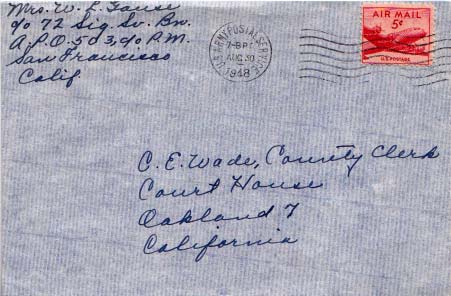 Mrs. W. L.
c/o 72 Sig. Sv. Bn.
A.P.O. 503, c/o P.M.
San Francisco
Calif.
U.S. ARMY POSTAL SERVICE
7-8 PM
AUG 30
1948
AIR MAIL
5¢
U.S. POSTAGE
C. E. Wade, County Clerk
Court House
Oakland 7
California